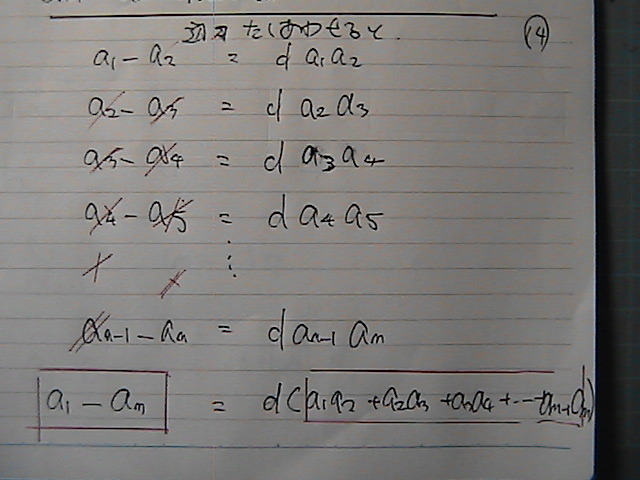 辺々たしあわせると.
(14)
a₁ - a₂ = d a₁ a₂
a₂ - a₃ = d a₂ a₃
a₃ - a₄ = d a₃ a₄
a₄ - a₅ = d a₄ a₅
⋮
aₙ₋₁ - aₙ = d aₙ₋₁ aₙ
a₁ - aₙ = d(a₁a₂ + a₂a₃ + a₃a₄ + ... aₙ₋₁aₙ)